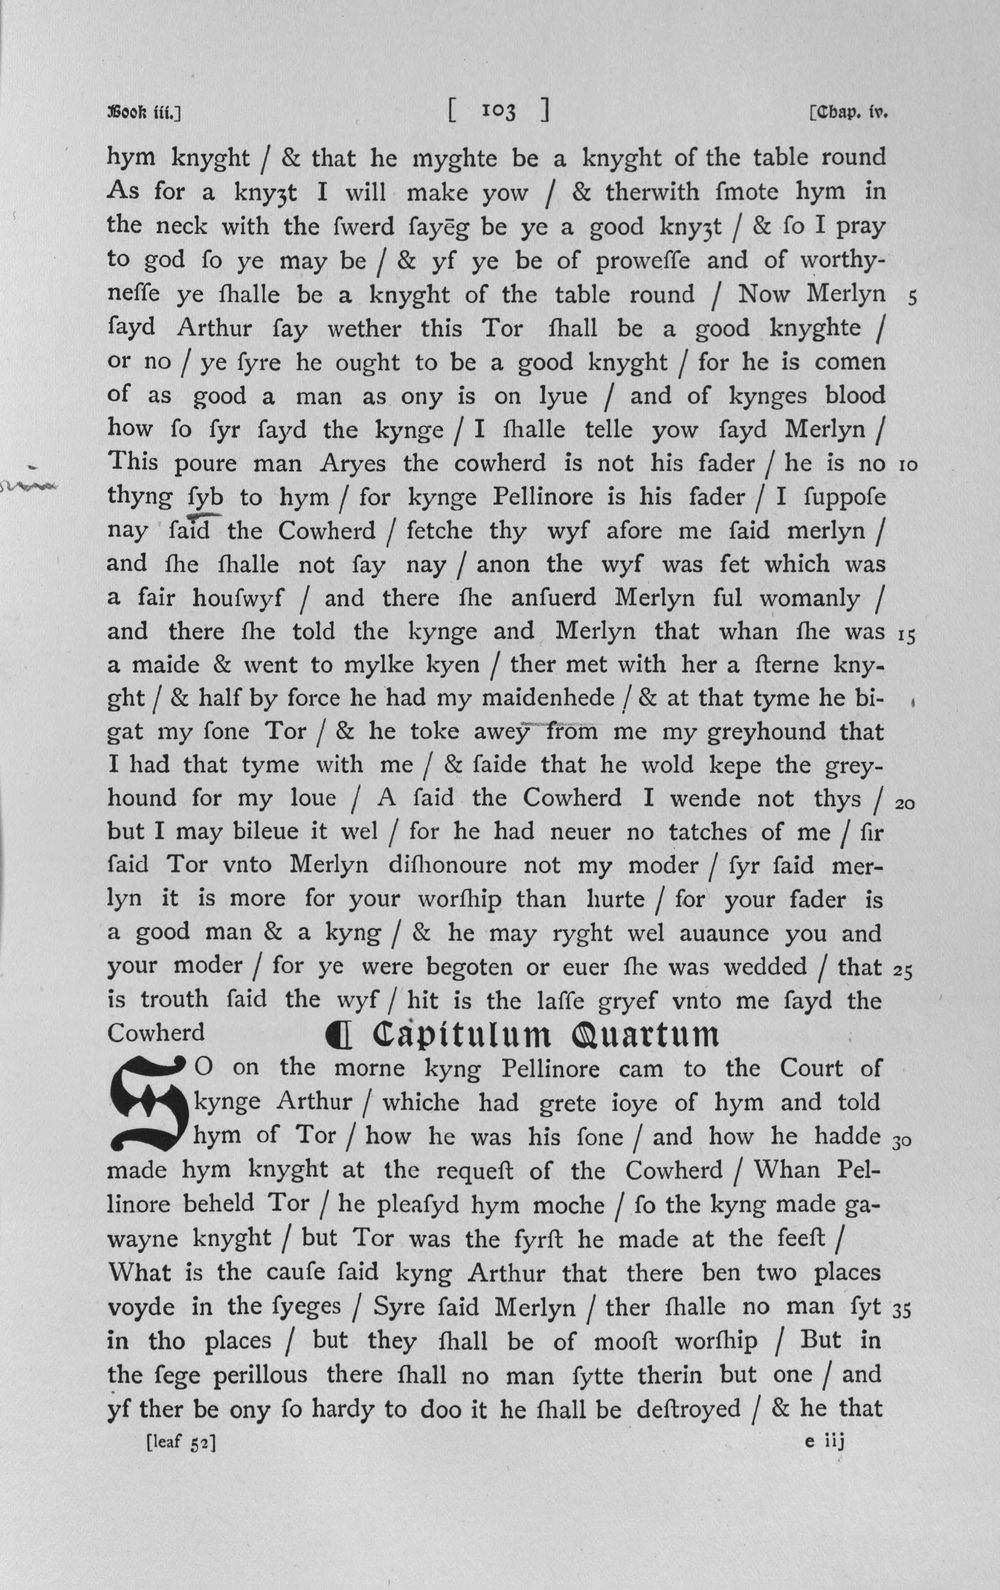 Book iii.] [ 103 ] [Chap. iv.
hym knyght / & that he myghte be a knyght of the table round
As for a knyȝt I will make yow / & therwith ſmote hym in
the neck with the ſwerd ſayēg be ye a good knyȝt / & ſo I pray
to god ſo ye may be / & yf ye be of proweſſe and of worthy-
neſſe ye ſhalle be a knyght of the table round / Now Merlyn 5
ſayd Arthur ſay wether this Tor ſhall be a good knyghte /
or no / ye ſyre he ought to be a good knyght / for he is comen
of as good a man as ony is on lyue / and of kynges blood
how ſo ſyr ſayd the kynge / I ſhalle telle yow ſayd Merlyn /
This poure man Aryes the cowherd is not his fader / he is no 10
thyng ſyb to hym / for kynge Pellinore is his fader / I ſuppoſe
nay ſaid the Cowherd / fetche thy wyf afore me ſaid merlyn /
and ſhe ſhalle not ſay nay / anon the wyf was fet which was
a fair houſwyf / and there ſhe anſuerd Merlyn ful womanly /
and there ſhe told the kynge and Merlyn that whan ſhe was 15
a maide & went to mylke kyen / ther met with her a ſterne kny-
ght / & half by force he had my maidenhede / & at that tyme he bi-
gat my ſone Tor / & he toke awey from me my greyhound that
I had that tyme with me / & ſaide that he wold kepe the grey-
hound for my loue / A ſaid the Cowherd I wende not thys / 20
but I may bileue it wel / for he had neuer no tatches of me / ſir
ſaid Tor vnto Merlyn diſhonoure not my moder / ſyr ſaid mer-
lyn it is more for your worſhip than hurte / for your fader is
a good man & a kyng / & he may ryght wel auaunce you and
your moder / for ye were begoten or euer ſhe was wedded / that 25
is trouth ſaid the wyf / hit is the laſſe gryef vnto me ſayd the
Cowherd ¶ Capitulum Quartum
SO on the morne kyng Pellinore cam to the Court of
kynge Arthur / whiche had grete ioye of hym and told
hym of Tor / how he was his ſone / and how he hadde 30
made hym knyght at the requeſt of the Cowherd / Whan Pel-
linore beheld Tor / he pleaſyd hym moche / ſo the kyng made ga-
wayne knyght / but Tor was the fyrſt he made at the feeſt /
What is the cauſe ſaid kyng Arthur that there ben two places
voyde in the ſyeges / Syre ſaid Merlyn / ther ſhalle no man ſyt 35
in tho places / but they ſhall be of mooſt worſhip / But in
the ſege perillous there ſhall no man ſytte therin but one / and
yf ther be ony ſo hardy to doo it he ſhall be deſtroyed / & he that
[leaf 52] e iij